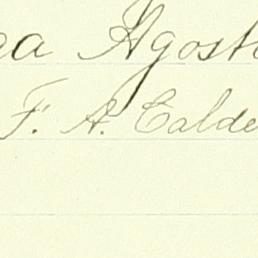 ea Agost
F. A. Calde